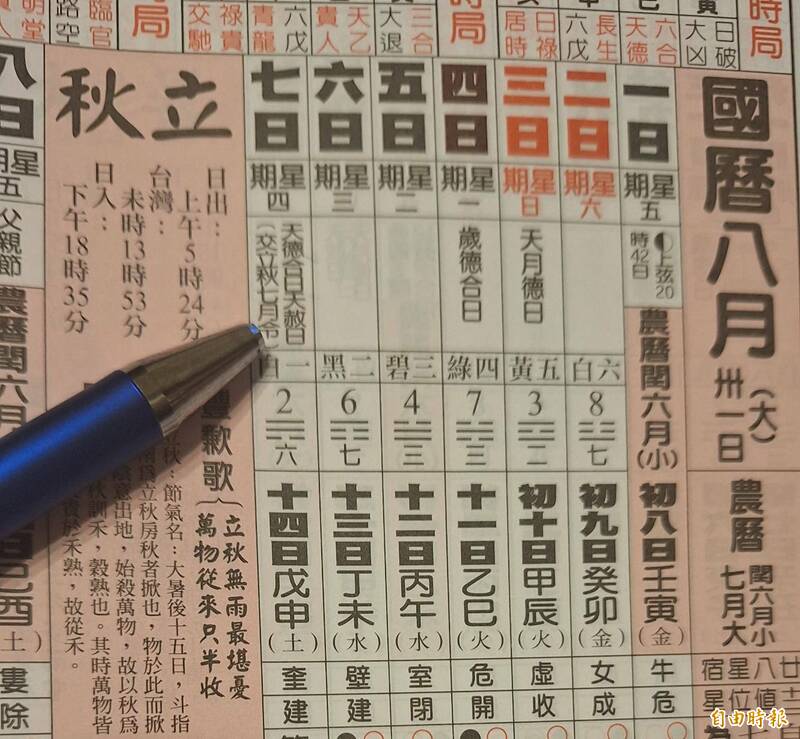 國曆八月(大)卅一日
農曆
閏六月小
七月大
廿八星宿
一日
星期五
上弦20
時42日
農曆閏六月(小)
初八日壬寅(金)
牛
危
二日
星期六
六白
8
七
初九日癸卯(金)
女
成
三日
星期日
天月德日
五黃
3
二
初十日甲辰(火)
虛
收
四日
星期一
歲德合日
四綠
7
三
十一日乙巳(火)
危
開
五日
星期二
三碧
4
三
十二日丙午(水)
室
閉
六日
星期三
二黑
6
七
十三日丁未(水)
壁
建
七日
星期四
天德合日天赦日
(交立秋七月令)
一白
2
六
十四日戊申(土)
奎
建
立秋
日出：
上午5時24分
台灣：
未時13時53分
日入：
下午18時35分
豐歉歌
立秋無雨最堪憂
萬物從來只半收
節氣名：大暑後十五日，斗指
立秋房秋者揫也，物於此而揫
出地，始殺萬物，故以秋為
秋訓禾，穀熟也。其時萬物皆
於禾熟，故從禾。
八日
星期五
父親節
農曆閏六月
己酉(土)
婁
除
時局
日破
大凶
六合
天德
長生
六戊
日祿
居時
時局
三合
大退
天乙
貴人
六戊
青龍
祿貴
交馳
時局
臨官
路空
明堂
自由時報